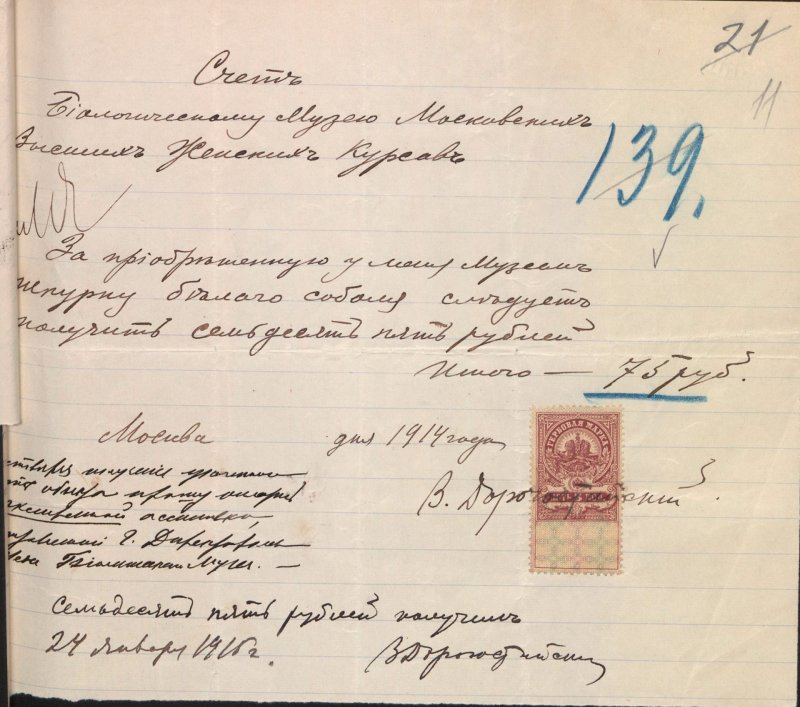 21
11
Счетъ
Біологическому Музею Московскихъ
Высшихъ Женскихъ Курсовъ
139.
За пріобрѣтенную у меня Музеемъ
шкурку бѣлаго соболя слѣдуетъ
получить семьдесятъ пять рублей
Итого — 75 руб.
Москва дня 1914 года
ГЕРБОВАЯ МАРКА
В. Дорогостайскій.
получить
прошу
Музея. —
Семьдесятъ пять рублей получилъ
24 января 1916 г. ВДорогостайскій